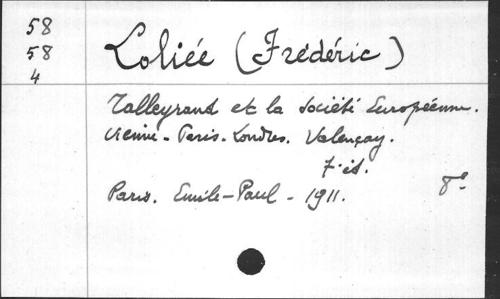 58
58
4
Loliée (Frédéric)
Talleyrand et la Société Européenne.
Vienne - Paris. Londres. Valençay.
7e éd.
Paris. Emile-Paul - 1911. 8°